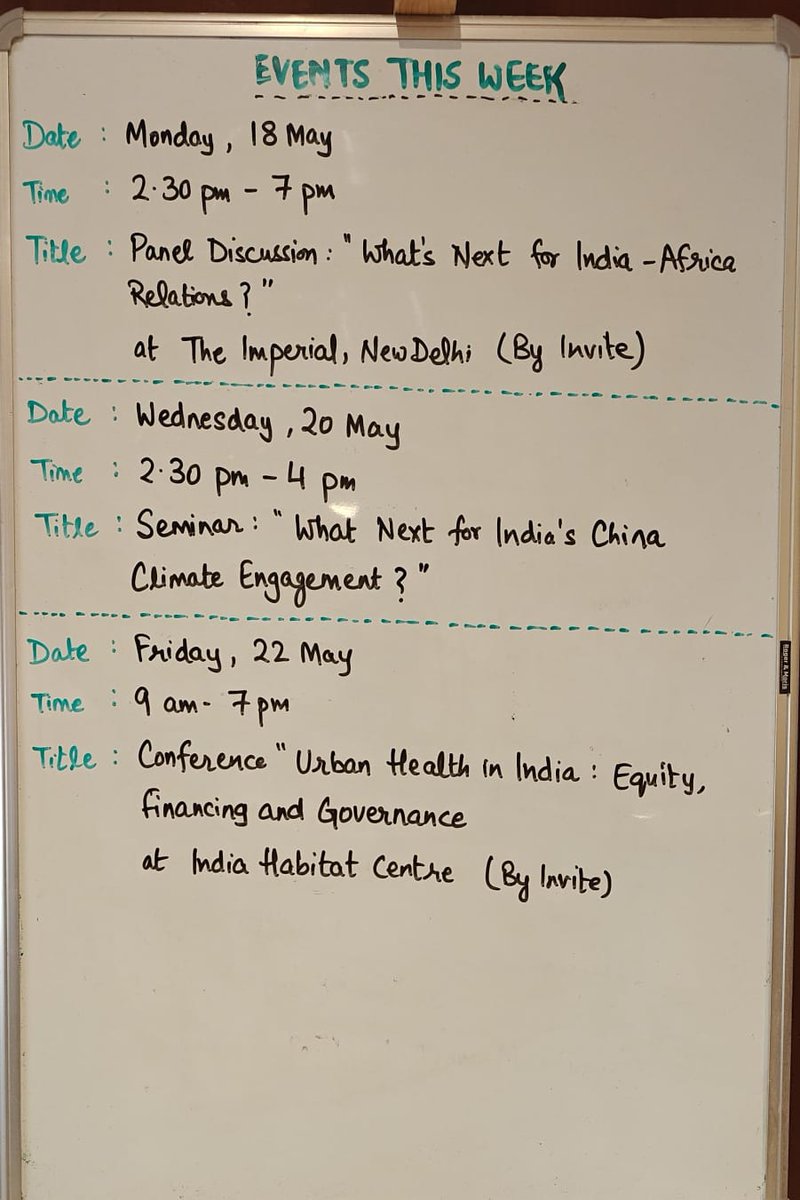 EVENTS THIS WEEK
Date : Monday, 18 May
Time : 2.30 pm - 7 pm
Title : Panel Discussion : "What's Next for India - Africa
Relations ? "
at The Imperial, New Delhi (By Invite)
Date : Wednesday, 20 May
Time : 2.30 pm - 4 pm
Title : Seminar : " What Next for India's China
Climate Engagement ? "
Date : Friday, 22 May
Time : 9 am - 7 pm
Title : Conference " Urban Health in India : Equity,
Financing and Governance
at India Habitat Centre (By Invite)
Roger & Moris